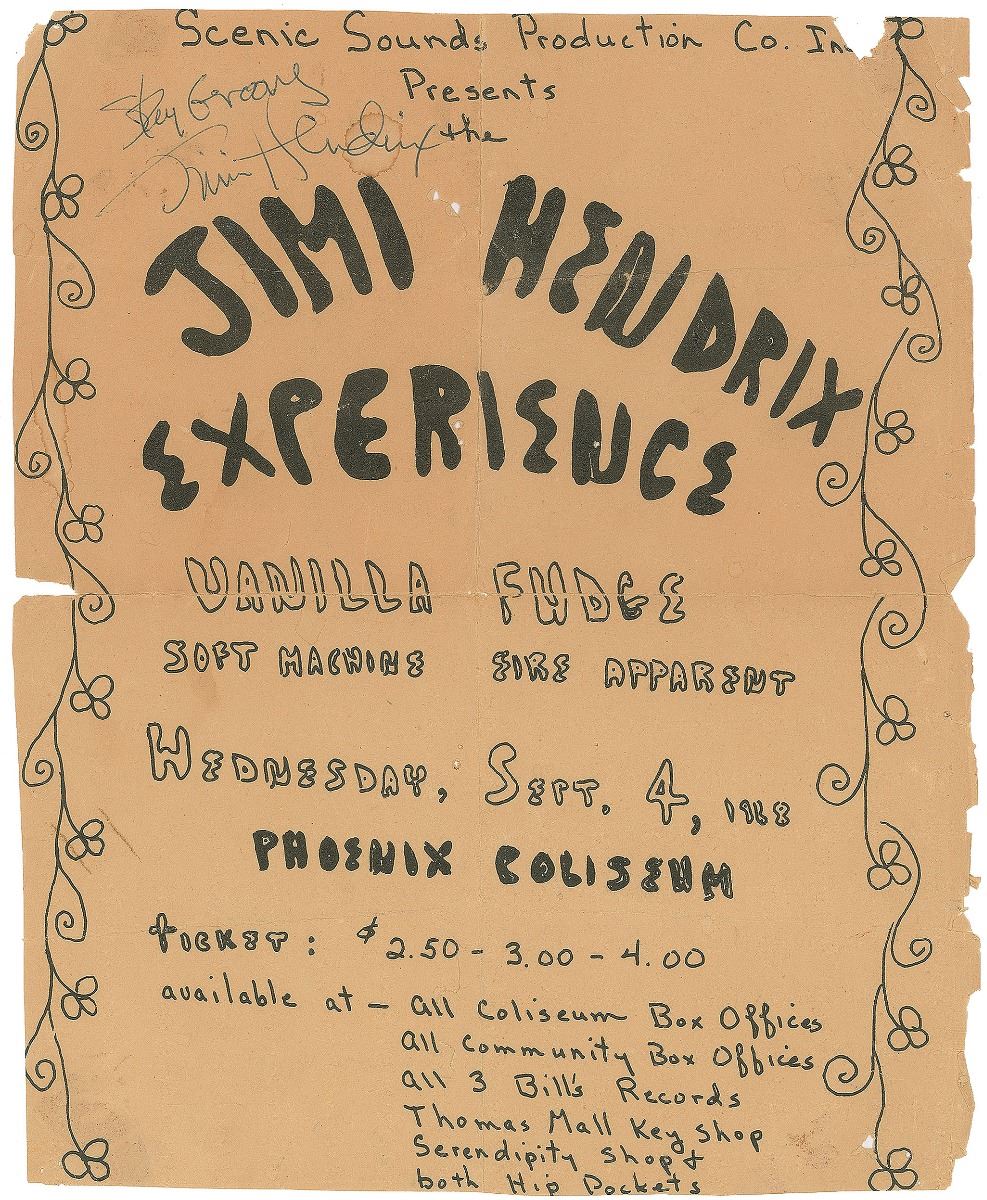 Scenic Sounds Production Co. Inc.
Presents
Stay Groovy
Jimi Hendrix
the
JIMI HENDRIX
EXPERIENCE
VANILLA FUDGE
SOFT MACHINE EIRE APPARENT
WEDNESDAY, SEPT. 4, 1968
PHOENIX COLISEUM
tICKET: $2.50 - 3.00 - 4.00
available at - all Coliseum Box Offices
all Community Box Offices
all 3 Bill's Records
Thomas Mall Key Shop
Serendipity Shop &
both Hip Pockets